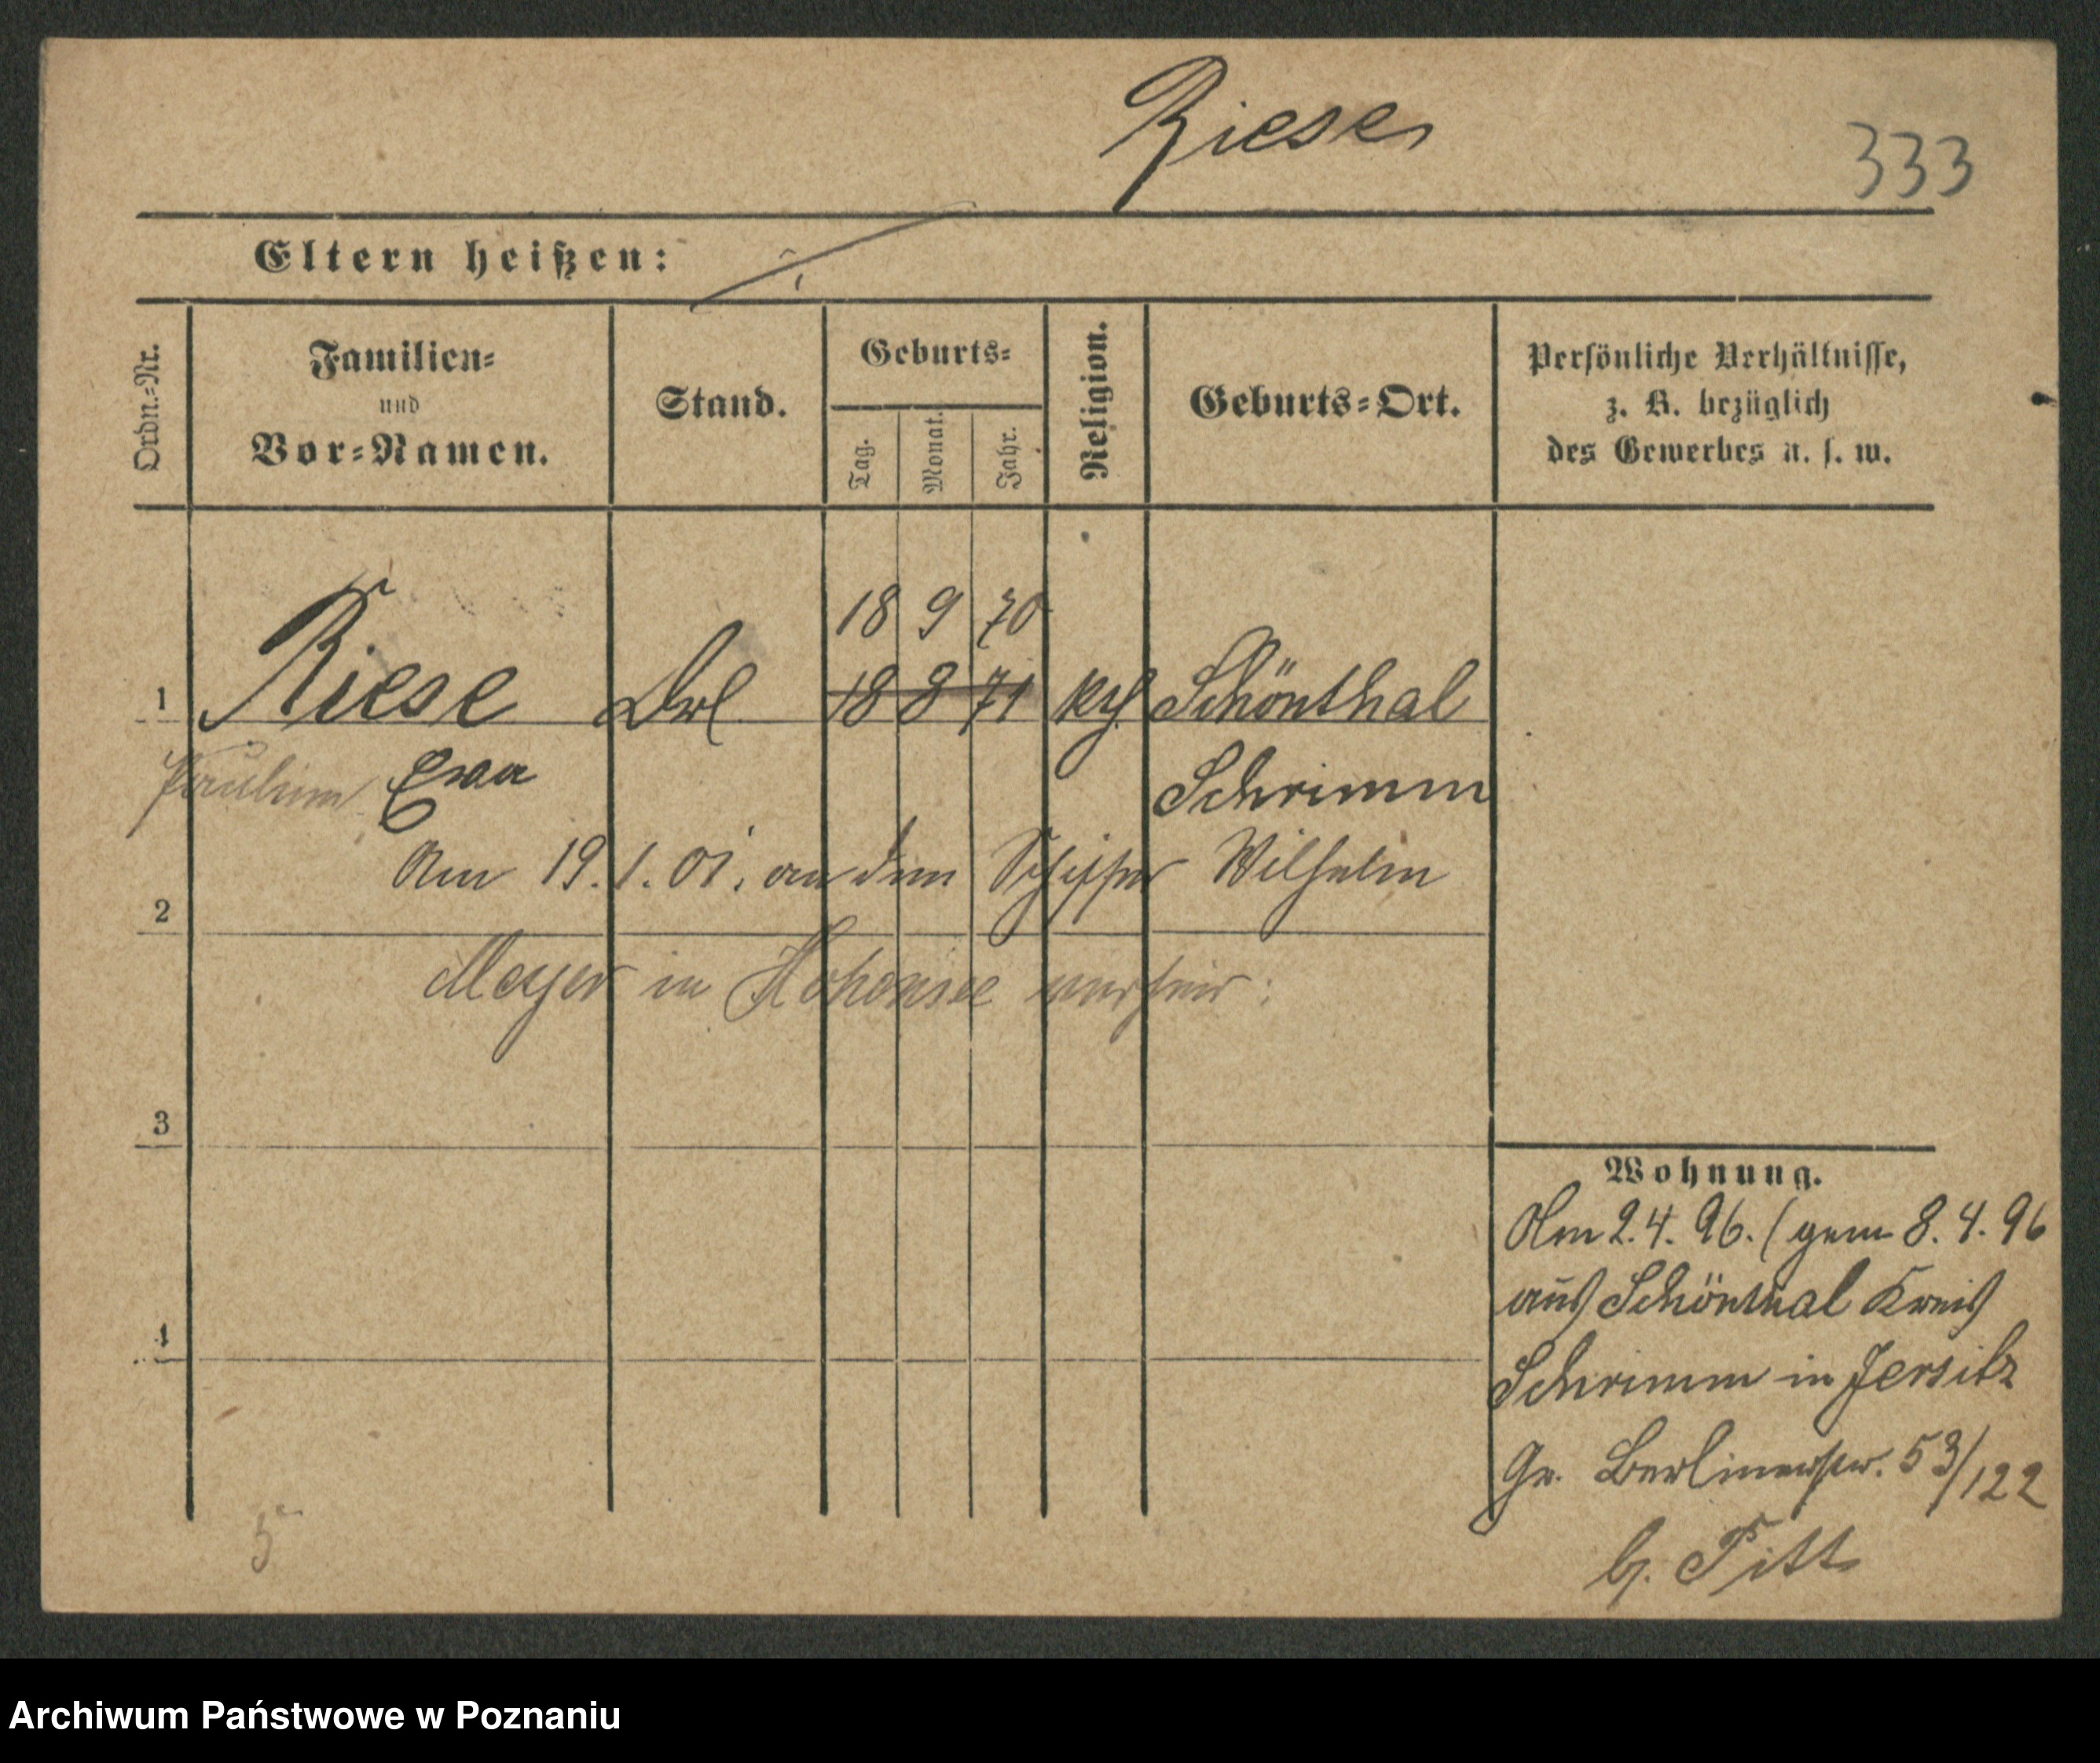 Riese
333
Eltern heißen:
Ordn.-Nr.
Familien-
und
Vor-Namen.
Stand.
Geburts-
Tag.
Monat.
Jahr.
Religion.
Geburts-Ort.
Persönliche Verhältnisse,
z. B. bezüglich
des Gewerbes u. s. w.
18 9 70
1 Riese 18 8 71 Schönthal
Eva Schrimm
Am 19.1.01. an den Schiffer Wilhelm
2
Meyer in Hohensee verheir:
3
4
Wohnung.
Am 2.4.96. (gem 8.4.96
aus Schönthal Kreis
Schrimm in Jersitz
Gr. Berlinerstr. 53/122
b. Pitt
Archiwum Państwowe w Poznaniu